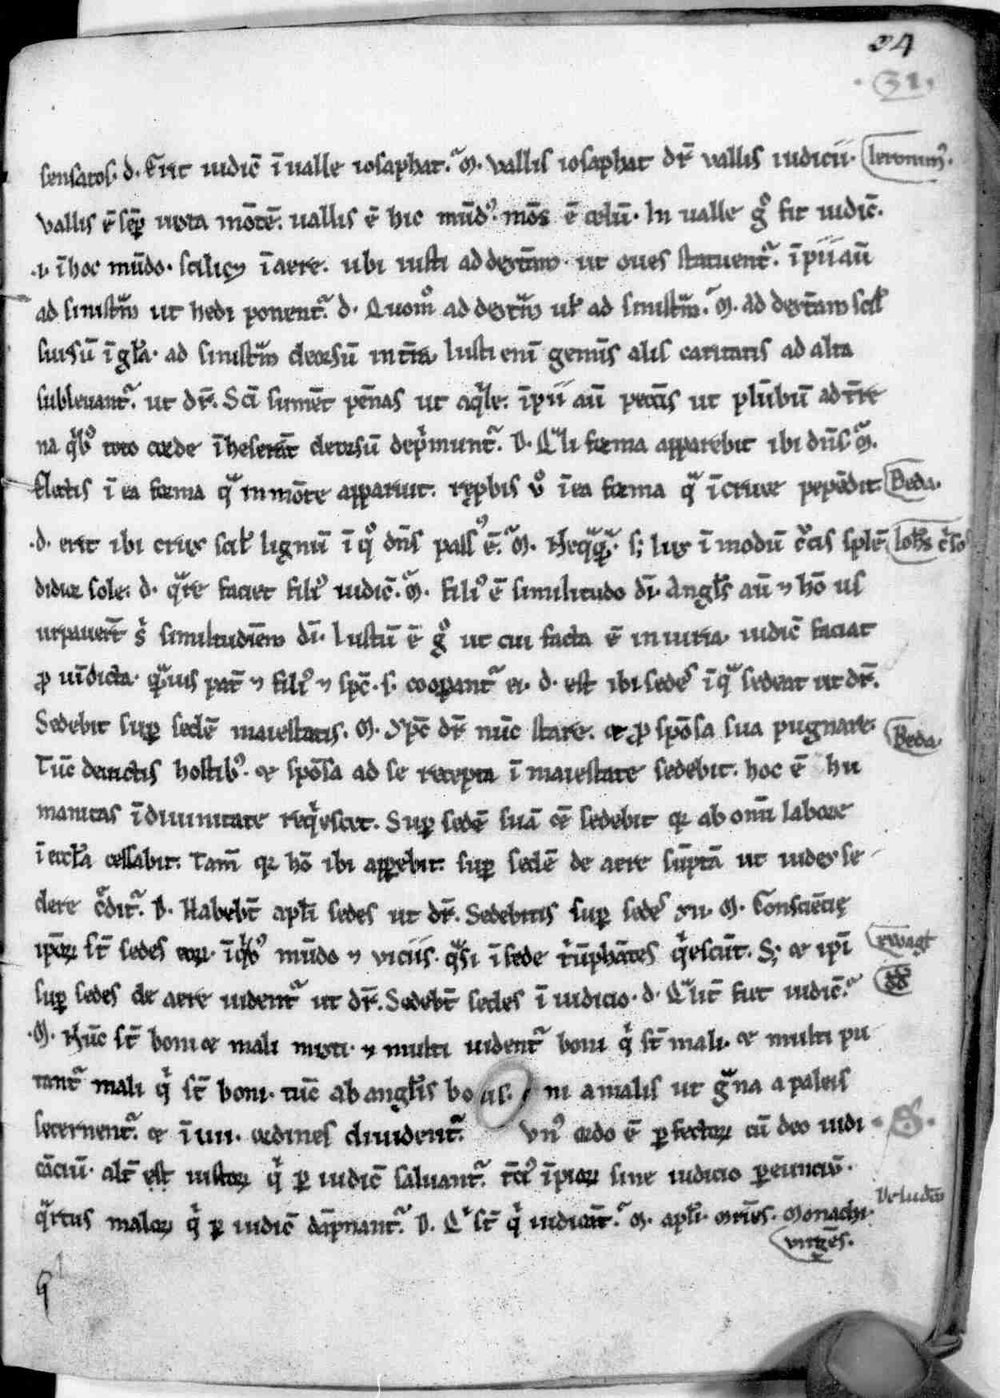 34
.31.
sensatos. d. Erit iudiciū ī ualle iosaphat. M. vallis iosaphat dr̄ vallis iudicii. Ieronim9.
vallis ē sēp iuxta mōtē. uallis ē hic mūd9. mōs ē celū. In ualle gͦ fit iudic̄.
.i. ī hoc mūdo. scilicet ī aere. ubi iusti ad dextram ut oues statuentᷣ. īpii aū
ad sinistrā ut hedi ponentᷣ. d. Quomͦ ad dextrā uł ad sinistrā. M. ad dextram scił
sursū ī gła. ad sinistrā deorsū in t̄ra. Iusti eni gemis alis caritatis ad alta
subleuantᷣ. ut dr̄. Sci sumēt pēnas ut aq̄le. īpii aū peccis ut plūbū ad t̄re
na q̄b9 toto corde īheserāt deorsū dep̄muntᷣ. D. Qᷓli forma apparebit ibi dn̄s. M.
Electis ī ea forma qᷓ in mōte apparuit. rep̄bis ū̊ ī ea forma qᷓ ī cruce pepēdit. Beda.
.d. erit ibi crux scił lignū ī qͦ dn̄s pass9 ē. M. Neqᷓqᷓ. s; lux ī modū c̄cis splē Ioh̄s c̄so9
didior sole. d. qᷓre faciet fili9 iudic̄. M. fili9 ē similitudo di. Angl̄s aū ⁊ hō us
urpauer̄t s̄ similitudinem di. Iustū ē gͦ ut cui facta ē iniuria. iudic̄ faciat
ꝓ uīdicta. quis pat̄ ⁊ fili9 ⁊ sp̄c. s. cooperantᷣ ei. d. est ibi sedes ī qᷓ sedeat ut dr̄.
Sedebit sup sedē maiestatis. M. Xp̄c dr̄ nūc stare. et ꝓ spōsa sua pugnare. Beda.
Tūc deuictis hostib9. et spōsa ad se recepta ī maiestate sedebit. hoc ē hu
manitas ī diuinitate req̄escet. Sup sedē suā etiā sedebit qr ab omi labore
ī eccła cessabit. Tam̄ qr hō ibi apparebit. sup sedē de aere sūptā ut iudex se
dere c̄ditᷣ. D. Habebt̄ apłi sedes ut dr̄. Sedebitis sup sedes xii. M. Conscienciȩ
ipsorum st̄ sedes eorum. ī q̄b9 mūdo ⁊ viciis. qᷓsi ī sede t̄ūphātes q̄escūt. S; et ipi ewagł
sup sedes de aere uidentᷣ ut dr̄. Sedebt̄ sedes ī iudicio. d. Qᷓlit̄ fiet iudic̄. gg
.M. Nūc st̄ boni et mali mixti. ⁊ multi uidentᷣ boni q̄ st̄ mali. et multi pu
tantᷣ mali q̄ st̄ boni. tūc ab angl̄is bo ni a malis ut gᷓna a paleis
secernentᷣ. et ī iiii. ordines diuidentᷣ. vn9 ordo ē pfectorum cū deo iudi
cāciū. alt̄ est iustorum q̄ p iudic̄ saluantᷣ. t̄ci9 īpiorum sine iudicio pereunciū.
qᷓrtus malorum q̄ p iudic̄ dāpnantᷣ. D. Qͥ st̄ q̄ iudicāt. M. apłi. mr̄es. monachi. De iudi
virgēs.